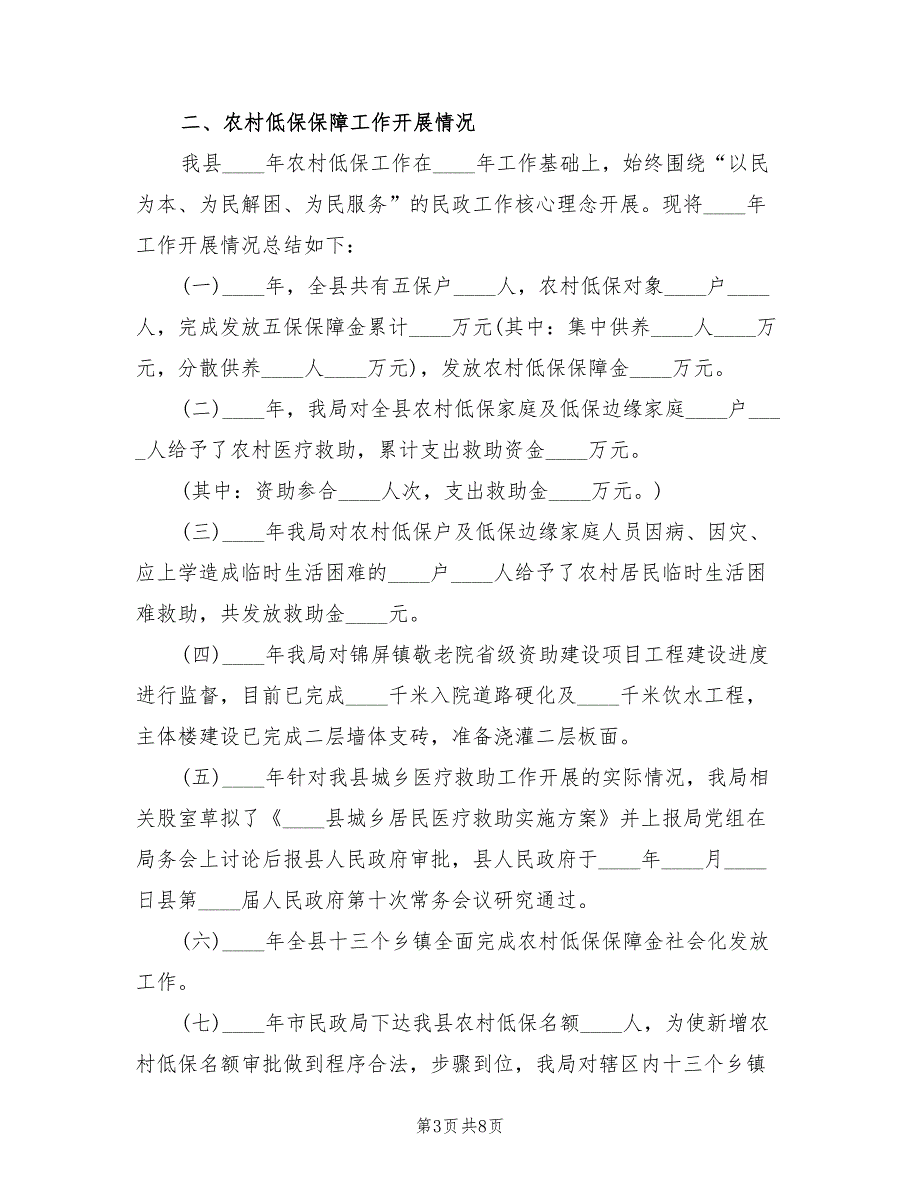 二、农村低保保障工作开展情况
我县____年农村低保工作在____年工作基础上，始终围绕“以民
为本、为民解困、为民服务”的民政工作核心理念开展。现将____年
工作开展情况总结如下：
(一)____年，全县共有五保户____人，农村低保对象____户____
人，完成发放五保保障金累计____万元(其中：集中供养____人____万
元，分散供养____人____万元)，发放农村低保保障金____万元。
(二)____年，我局对全县农村低保家庭及低保边缘家庭____户___
_人给予了农村医疗救助，累计支出救助资金____万元。
(其中：资助参合____人次，支出救助金____万元。)
(三)____年我局对农村低保户及低保边缘家庭人员因病、因灾、
应上学造成临时生活困难的____户____人给予了农村居民临时生活困
难救助，共发放救助金____元。
(四)____年我局对锦屏镇敬老院省级资助建设项目工程建设进度
进行监督，目前已完成____千米入院道路硬化及____千米饮水工程，
主体楼建设已完成二层墙体支砖，准备浇灌二层板面。
(五)____年针对我县城乡医疗救助工作开展的实际情况，我局相
关股室草拟了《____县城乡居民医疗救助实施方案》并上报局党组在
局务会上讨论后报县人民政府审批，县人民政府于____年____月____
日县第____届人民政府第十次常务会议研究通过。
(六)____年全县十三个乡镇全面完成农村低保保障金社会化发放
工作。
(七)____年市民政局下达我县农村低保名额____人，为使新增农
村低保名额审批做到程序合法，步骤到位，我局对辖区内十三个乡镇
第3页 共8页